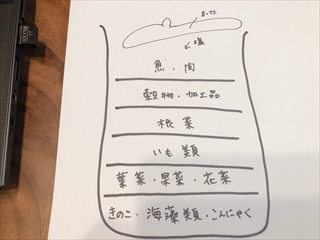 ふた
塩
魚・肉
穀物・加工品
根菜
いも類
葉菜・果菜・花菜
きのこ・海藻類・こんにゃく